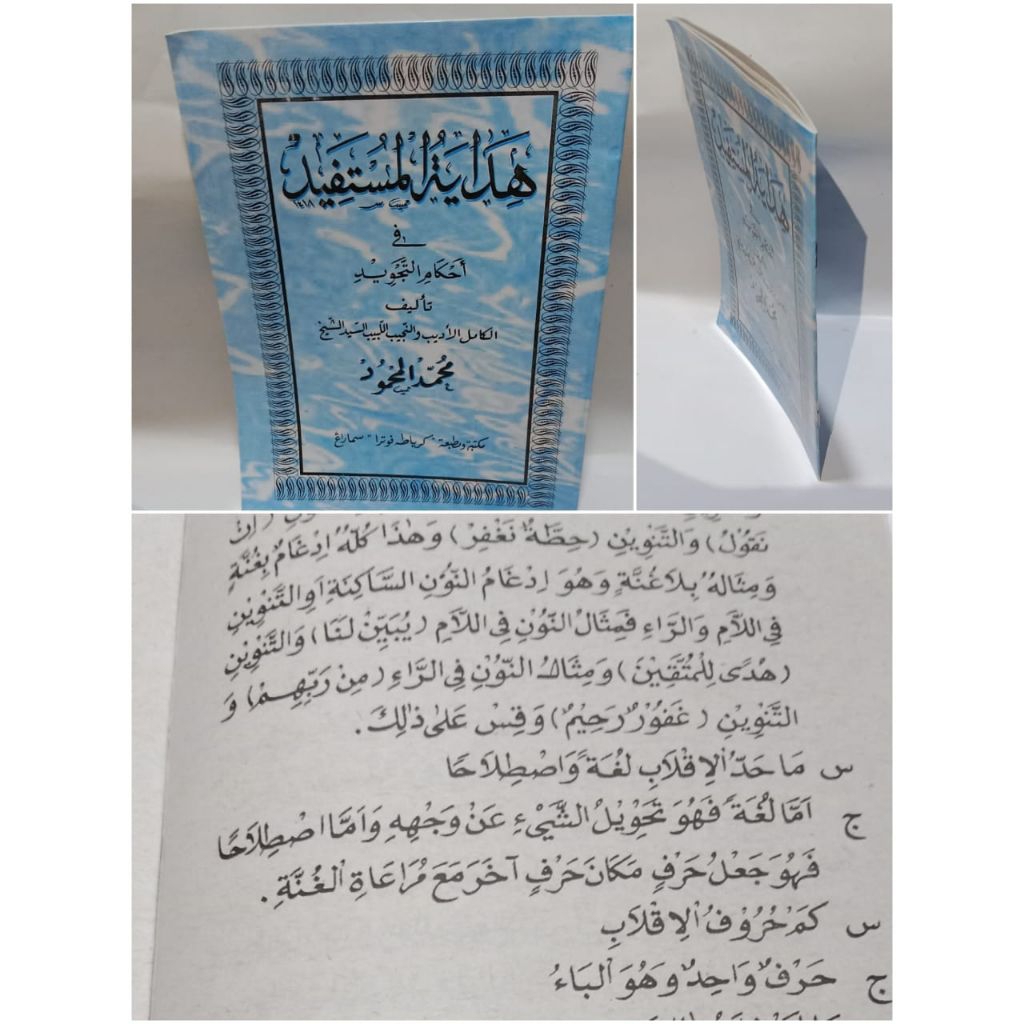 هِدَايَةُ الْمُسْتَفِيْدِ
فِى
أَحْكَامِ التَّجْوِيْدِ
تأليف
الكامل الأديب والنجيب اللبيب السيد الشيخ
مُحَمَّدْ الْمَحْمُوْد
مكتبة ومطبعة "كرياطه فوترا" سماراغ
هداية المستفيد
نَقُوْلُ) وَالتَّنْوِيْنِ (حِطَّةٌ نَغْفِرْ) وَهٰذَا كُلُّهُ اِدْغَامٌ بِغُنَّةٍ
وَمِثَالُهُ بِلَاغُنَّةٍ وَهُوَ اِدْغَامُ النُّوْنِ السَّاكِنَةِ اَوِالتَّنْوِيْنِ
فِى اللَّامِ وَالرَّاءِ فَمِثَالُ النُّوْنِ فِى اللَّامِ (يُبَيِّنْ لَنَا) وَالتَّنْوِيْنِ
(هُدًى لِلْمُتَّقِيْنَ) وَمِثَالُ النُّوْنِ فِى الرَّاءِ (مِنْ رَبِّهِمْ) وَ
التَّنْوِيْنِ (غَفُوْرٌ رَحِيْمٌ) وَقِسْ عَلٰى ذٰلِكَ.
س مَا حَدُّ الْاِقْلَابِ لُغَةً وَاصْطِلَاحًا
ج اَمَّا لُغَةً فَهُوَ تَحْوِيْلُ الشَّيْءِ عَنْ وَجْهِهِ وَاَمَّا اصْطِلَاحًا
فَهُوَ جَعْلُ حَرْفٍ مَكَانَ حَرْفٍ آخَرَ مَعَ مُرَاعَاةِ الْغُنَّةِ.
س كَمْ حُرُوْفُ الْاِقْلَابِ
ج حَرْفٌ وَاحِدٌ وَهُوَ الْبَاءُ